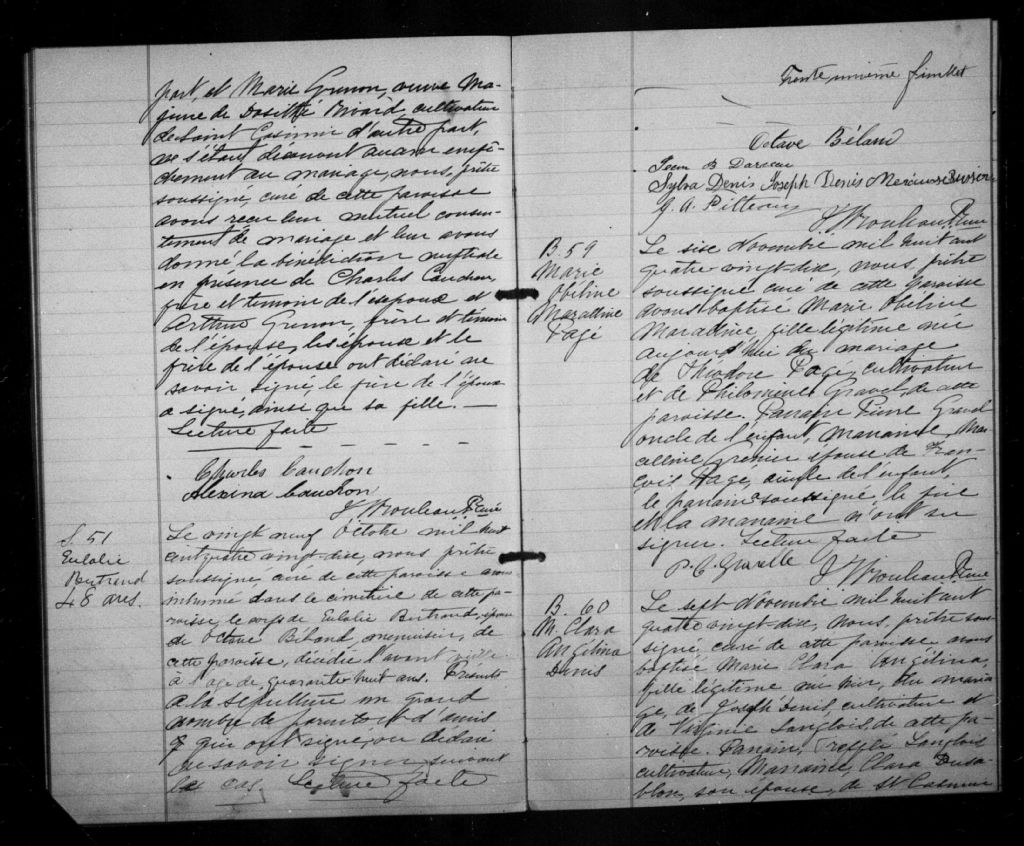 part, et Marie Grenon, veuve Ma-
jeure de Dosithé Rivard, cultivateur
de Saint Casimir d'autre part,
ne s'étant découvert aucun empê-
chement au mariage, nous, prêtre
soussigné, curé de cette paroisse
avons reçu leur mutuel consen-
tement de mariage et leur avons
donné la bénédiction nuptiale
en présence de Charles Cauchon,
frère et temoin de l'époux et
Arthur Grenon, frère et témoin
de l'épouse, les époux et le
frère de l'épouse ont déclaré ne
savoir signé, le frère de l'époux
a signé, ainsi que sa fille. —
Lecture faite
Charles Cauchon
Alexina Cauchon
J Rouleau Ptre Curé
S. 51
Eulalie
Bertrand
48 ans.
Le vingt neuf Octobre mil huit
cent quatre vingt dix, nous prêtre
soussigné, curé de cette paroisse avons
inhumé dans le cimetière de cette pa-
roisse, le corps de Eulalie Bertrand, épouse
de Octave Béland, menuisier, de
cette paroisse, décédée l'avant veille
à l'age de quarante huit ans. Présents
à la sépulture un grand
nombre de parents et d'amis
qui ont signé, ou déclaré
ne savoir signer suivant
le cas. Lecture faite
Trente unième feuillet
Octave Béland
Jean B Darveau
Sylva Denis Joseph Denis
G. A. Pitteau
J Rouleau Ptre Curé
B. 59
Marie
Obéline
Marattine
Pagé
Le sixe Novembre mil huit cent
quatre vingt dix, nous, prêtre
soussigné curé de cette paroisse
avons baptisé Marie Obéline
Marattine, fille légitime née
aujourd'hui du mariage
de Théodore Page, cultivateur
et de Philomène Gravel, de cette
paroisse. Parrain Pierre Gravel
oncle de l'enfant, marraine, Mar-
celline Grenier épouse de Fran-
çois Pagé, aïeule de l'enfant,
le parrain soussigné, le père
et la marraine n'ont su
signer. Lecture faite
P. C. Gravelle J Rouleau Ptre Curé
B. 60
M. Clara
Angélina
Denis
Le sept Novembre mil huit cent
quatre vingt dix, Nous, prêtre sous-
signé, curé de cette paroisse, avons
baptisé Marie Clara Angélina,
fille légitime née hier, du maria-
ge, de Joseph Denis, cultivateur et
de Virginie Langlois, de cette pa-
roisse. Parrain, Treflé Langlois
cultivateur, Marraine, Clara Dusa-
blon, son épouse, de St Casimir